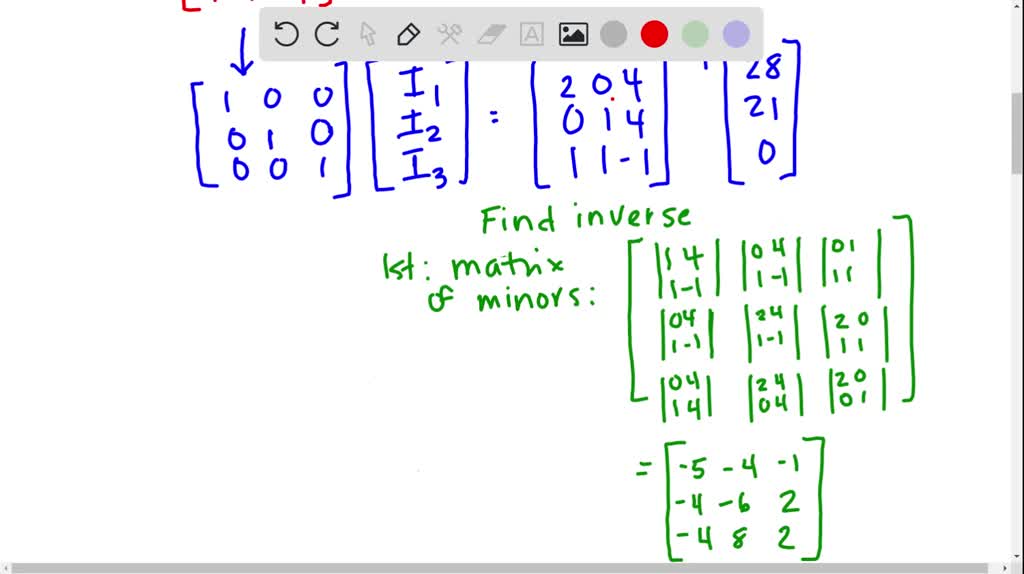 [1 0 0; 0 1 0; 0 0 1] [I1; I2; I3] = [2 0 4; 0 1 4; 1 1 -1] [28; 21; 0]
Find inverse
1st: matrix
of minors:
[|1 4; 1 -1| |0 4; 1 -1| |0 1; 1 1|
|0 4; 1 -1| |2 4; 1 -1| |2 0; 1 1|
|0 4; 1 4| |2 4; 0 4| |2 0; 0 1|]
= [-5 -4 -1
-4 -6 2
-4 8 2]